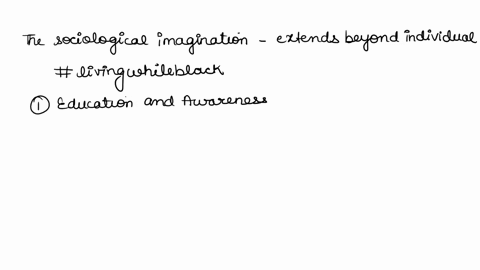 The sociological imagination - extends beyond individual
#livingwhileblack
① Education and Awareness